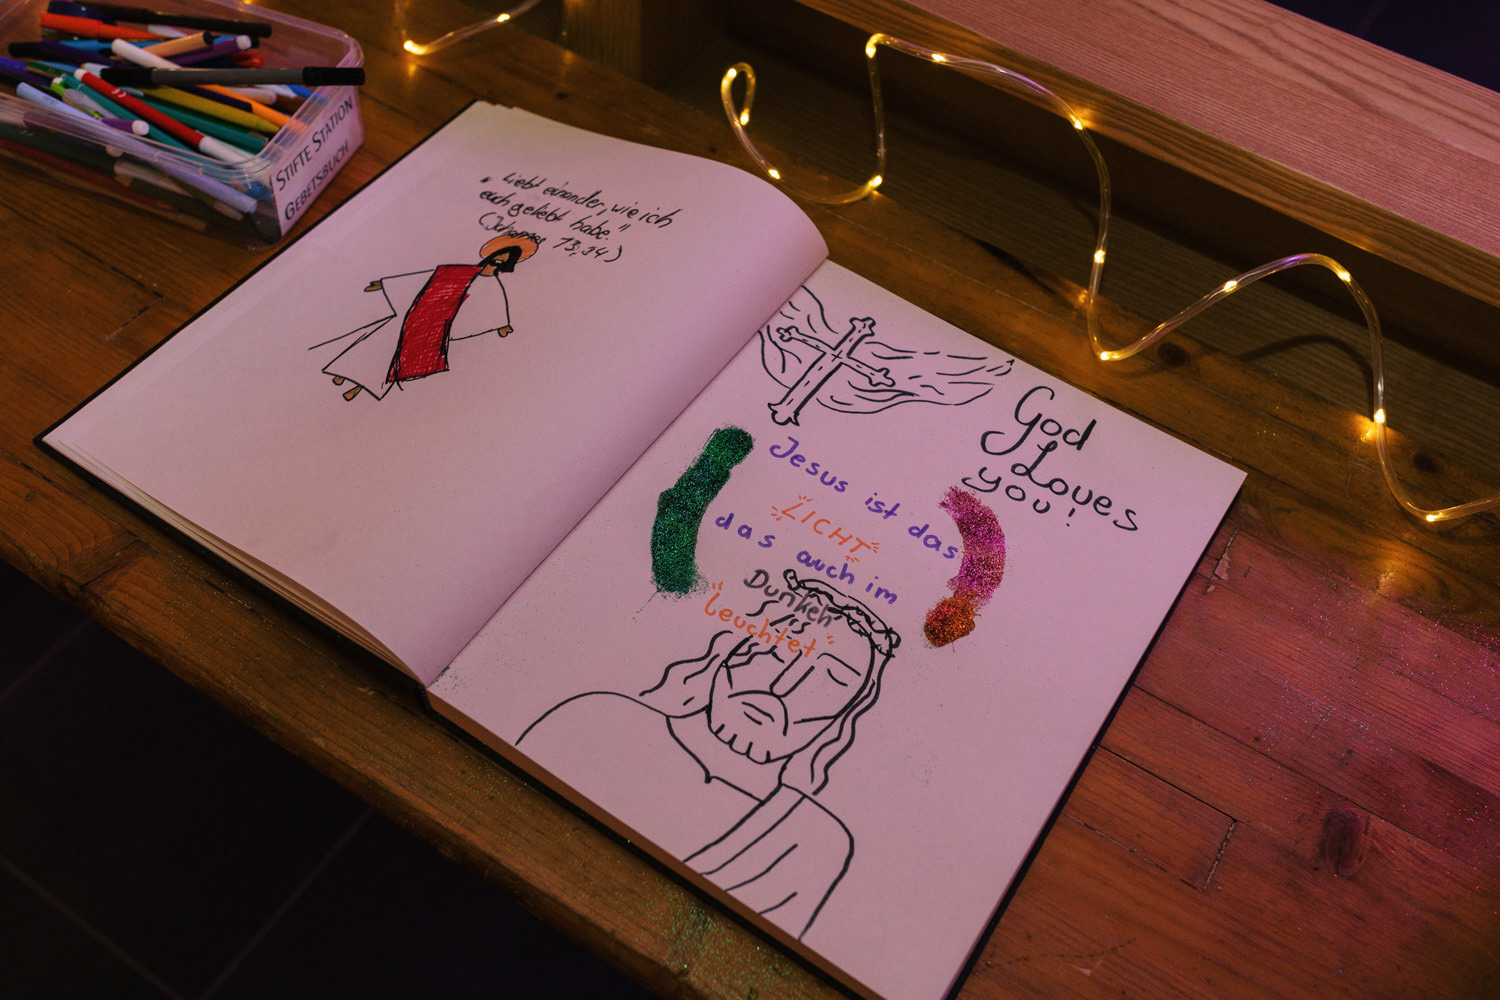 STIFTE STATION
GEBETSBUCH
"Liebt einander, wie ich
euch geliebt habe."
(Johannes 13,34)
God
Loves
you!
Jesus ist das
LICHT
das auch im
Dunkeln
leuchtet